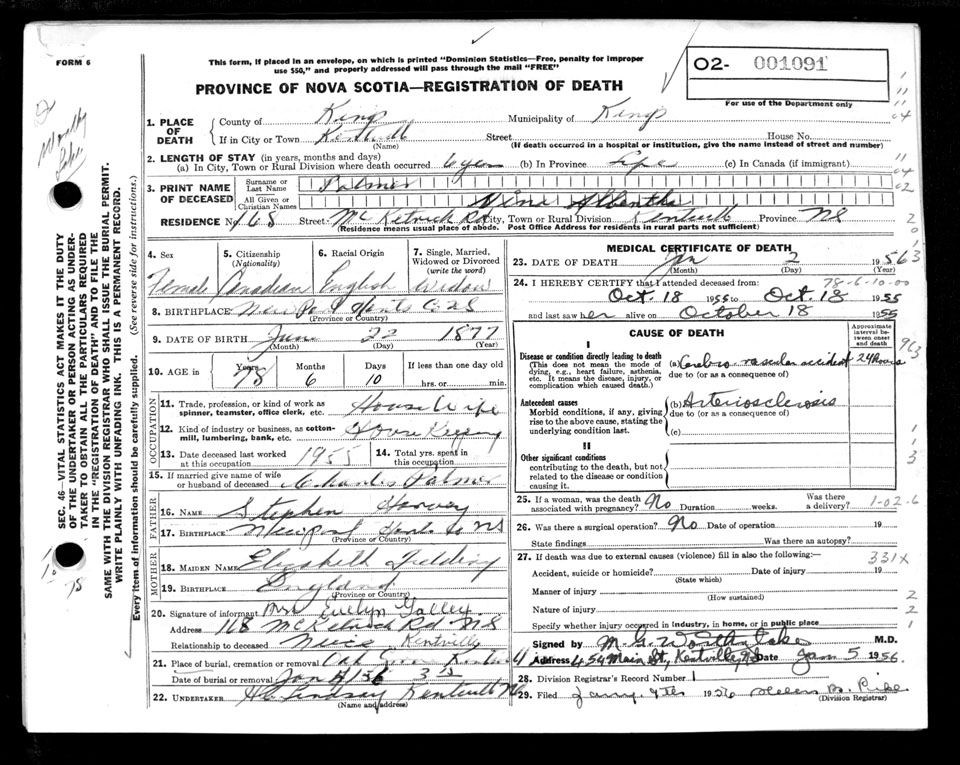 FORM 6
This form, if placed in an envelope, on which is printed "Dominion Statistics—Free, penalty for improper
use $50," and properly addressed will pass through the mail "FREE"
O2- 001091
For use of the Department only
PROVINCE OF NOVA SCOTIA—REGISTRATION OF DEATH
1. PLACE OF DEATH
County of Kings Municipality of Kings
If in City or Town Kentville Street House No.
(Name) (If death occurred in a hospital or institution, give the name instead of street and number)
2. LENGTH OF STAY (in years, months and days)
(a) In City, Town or Rural Division where death occurred 6 yrs (b) In Province Life (c) In Canada (if immigrant)
3. PRINT NAME OF DECEASED
Surname or Last Name Palmer
All Given or Christian Names Nina
RESIDENCE No. 168 Street McKittrick Rd City, Town or Rural Division Kentville Province NS
(Residence means usual place of abode. Post Office Address for residents in rural parts not sufficient)
4. Sex 5. Citizenship (Nationality) 6. Racial Origin 7. Single, Married, Widowed or Divorced (write the word)
Female Canadian English Widow
8. BIRTHPLACE Newport Hants Co NS
(Province or Country)
9. DATE OF BIRTH June 22 1877
(Month) (Day) (Year)
10. AGE in Years 78 Months 6 Days 10 If less than one day old hrs. or min.
OCCUPATION
11. Trade, profession, or kind of work as spinner, teamster, office clerk, etc. House Wife
12. Kind of industry or business, as cotton-mill, lumbering, bank, etc. House Keeping
13. Date deceased last worked at this occupation 1955 14. Total yrs. spent in this occupation
15. If married give name of wife or husband of deceased Charles Palmer
FATHER
16. NAME Stephen Harvey
17. BIRTHPLACE Newport Hants Co NS
(Province or Country)
MOTHER
18. MAIDEN NAME Elizabeth
19. BIRTHPLACE England
(Province or Country)
20. Signature of informant Mrs Evelyn Galley
Address 168 McKittrick Rd NS
Relationship to deceased Niece Kentville
21. Place of burial, cremation or removal Oak Grove Kentville
Date of burial or removal Jan
22. UNDERTAKER Lindsay Kentville NS
(Name and address)
MEDICAL CERTIFICATE OF DEATH
23. DATE OF DEATH Jan 2 1956
(Month) (Day) (Year)
24. I HEREBY CERTIFY that I attended deceased from: 78-6-10-00
Oct. 18 1955 to Oct. 18 1955
and last saw her alive on October 18 1955
CAUSE OF DEATH
Approximate interval between onset and death
I
Disease or condition directly leading to death
(This does not mean the mode of dying, e.g., heart failure, asthenia, etc. It means the disease, injury, or complication which caused death.)
(a) Cerebro-vascular accident 24 hours
due to (or as a consequence of)
Antecedent causes
Morbid conditions, if any, giving rise to the above cause, stating the underlying condition last.
(b) Arteriosclerosis
due to (or as a consequence of)
(c)
II
Other significant conditions
contributing to the death, but not related to the disease or condition causing it.
25. If a woman, was the death associated with pregnancy? No Duration weeks. Was there a delivery? 1-02-6
26. Was there a surgical operation? No Date of operation 19
State findings Was there an autopsy?
27. If death was due to external causes (violence) fill in also the following:— 331X
Accident, suicide or homicide? Date of injury 19
(State which)
Manner of injury
(How sustained)
Nature of injury
Specify whether injury occurred in industry, in home, or in public place
Signed by M. G. M.D.
Address 454 Main St, Kentville, NS Date Jan 5 1956.
28. Division Registrar's Record Number 1
29. Filed 1956 Helen B. Pike
(Division Registrar)
SEC. 46—VITAL STATISTICS ACT MAKES IT THE DUTY
OF THE UNDERTAKER OR PERSON ACTING AS UNDER-
TAKER TO OBTAIN ALL THE PARTICULARS REQUIRED
IN THE "REGISTRATION OF DEATH" AND TO FILE THE
SAME WITH THE DIVISION REGISTRAR WHO SHALL ISSUE THE BURIAL PERMIT.
WRITE PLAINLY WITH UNFADING INK. THIS IS A PERMANENT RECORD.
Every item of information should be carefully supplied. (See reverse side for instructions.)